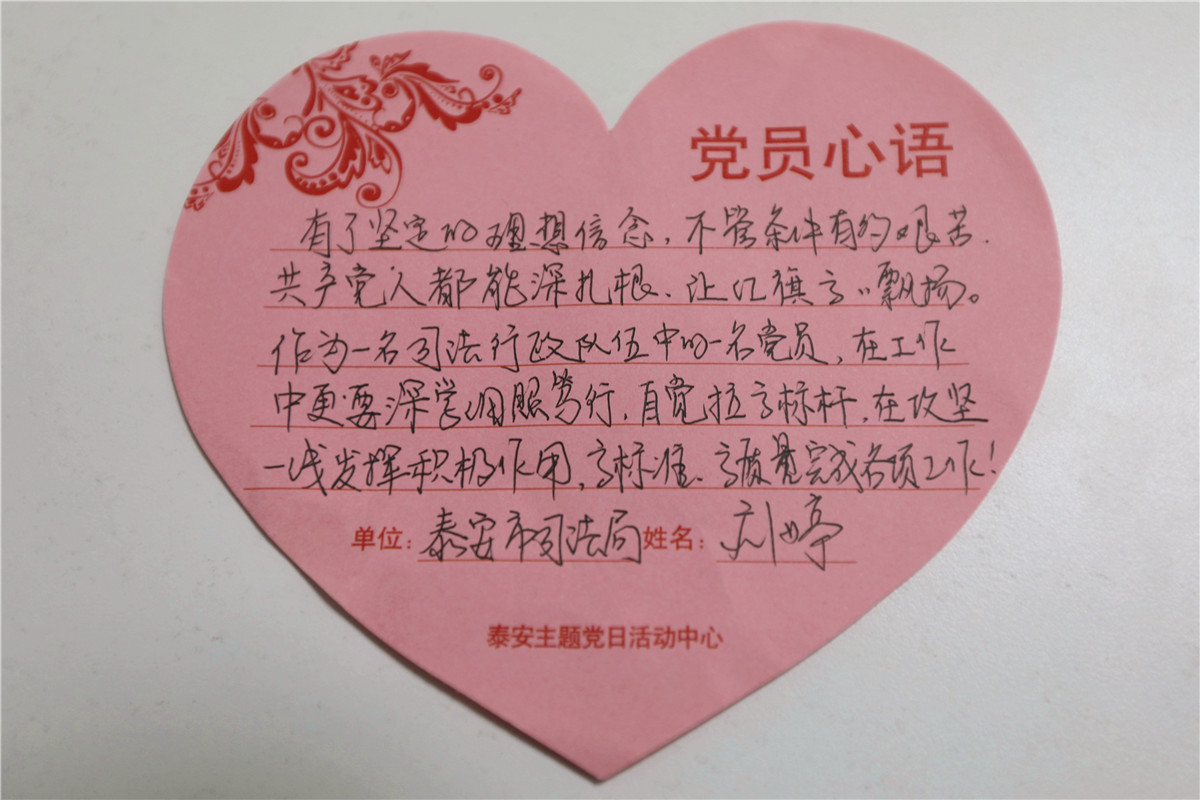 党员心语
有了坚定的理想信念，不管条件有约艰苦，
共产党人都能深扎根、让红旗高高飘扬。
作为一名司法行政队伍中的一名党员，在工作
中更要深学细照笃行，自觉拉高标杆，在攻坚
一线发挥积极作用，高标准、高质量完成各项工作！
单位：泰安市司法局 姓名：刘婷
泰安主题党日活动中心